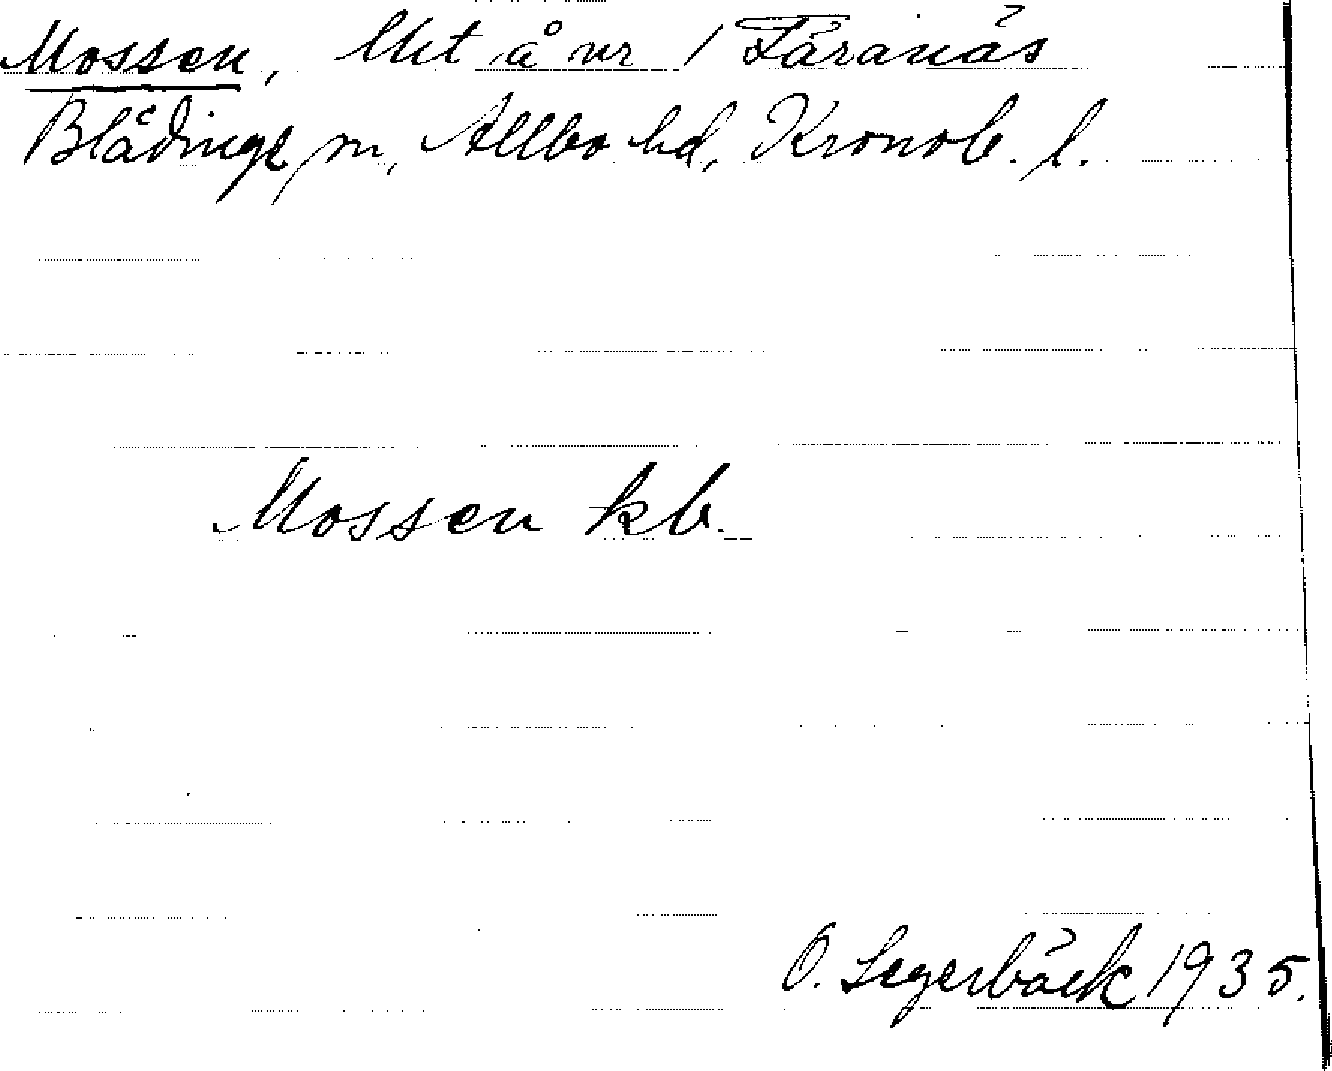 Mossen, Utet å nr 1 Täranäs
Blädinge sn, Allbo hd, Kronob. l.
Mossen kb.
O. Segerbäck 1935.